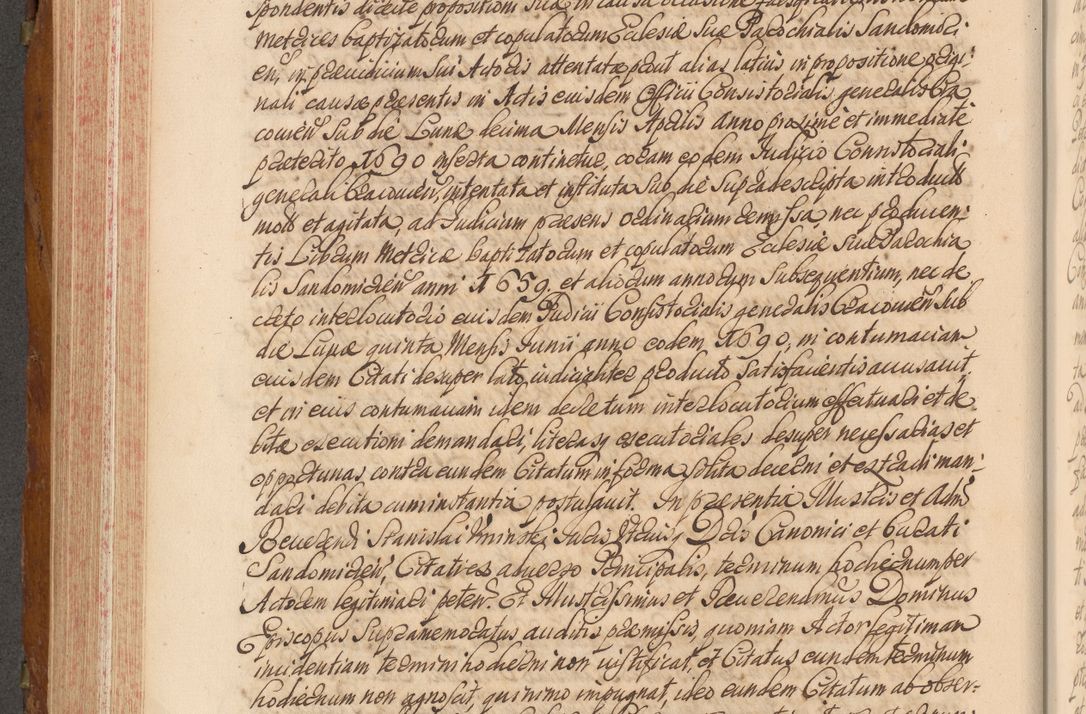 spondentis directe propositioni suæ in causa occasione
Metrices baptizatorum et copulatorum Ecclesiæ suæ Parochialis Sandomiri
en, in præiudicium sui Actoris attentatæ prout alias latius in propositione origi:
nali causæ præsentis in Actis eiusdem Officii Consistorialis generalis Cra
covien̄ sub die Lunæ decima Mensis Aprilis anno proxime et immediate
præterito 1690 inserta continetur, coram eodem Iudicio Consistoriali
generali Cracovien̄, intentata et instituta sub die supra descripta introducto
modo et agitata, ad Iudicium præsens ordinarium remissa nec producen:
tis Librum Metricæ baptizatorum et copulatorum Ecclesiæ suæ Parochia
lis Sandomirien̄ anni 1659. et aliorum annorum subsequentium, nec de
creto interlocutorio eiusdem Iudicii Consistorialis generalis Cracovien̄ sub
die Lunæ quinta Mensis Iunii anno eodem 1690, in contumaciam
eiusdem Citati desuper lato, iudicialiter producto satisfacientis accusavit,
et in eius contumaciam idem decretum interlocutorium effectuari et de
bitæ executioni demandari, literasq executoriales desuper necessarias et
opportunas contra eundem Citatum in forma solita decerni et extradi man:
dari debita cum instantia postulavit. In præsentia Illustris et Adm̄
Reverendi Stanislai Iuris Utriusq Dris Canonici et Curati
Sandomirien̄, Citati ex adverso Principalis, terminum hodiernum per
Actorem legitimari peten̄. Et Illustrissimus et Reverendissimus Dominus
Episcopus supramemoratus auditis præmissis, quoniam Actor legitiman
incidentiam termini hodierni non iustificat, et Citatus eundem terminum
hodiernum non agnoscit, quinimo impugnat, ideo eundem Citatum ab obser: